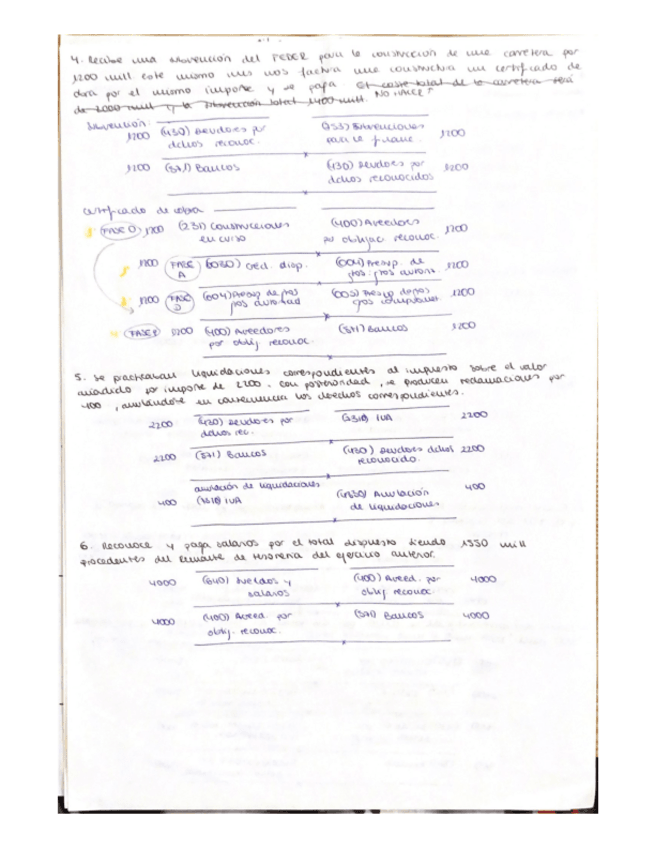 4. Recibe una subvención del FEDER para la construcción de una carretera por
1200 mill este mismo mes nos factura una constructora un certificado de
obra por el mismo importe y se paga. El coste total de la carretera será
de 2000 mill y la subvención total 1400 mill. NO HACER
Subvención:
1200 (430) Deudores por (755) Subvenciones 1200
dchos reconoc. para la financ.
1200 (571) Bancos (430) Deudores por 1200
dchos reconocidos
Certificado de obra
FASE O 1200 (231) Construcciones (400) Acreedores 1200
en curso por obligac. reconoc.
1200 FASE A (0030) Cred. disp. (004) Presup. de 1200
gtos: gtos autoriz.
1200 FASE D (004) Presup de gtos (005) Presup de gtos 1200
gtos autorizad gtos compromet.
FASE P 1200 (400) Acreedores (571) Bancos 1200
por oblig. reconoc.
5. Se practicaban liquidaciones correspondientes al impuesto sobre el valor
añadido por importe de 2200. Con posterioridad, se producen reclamaciones por
400, anulándose en consecuencia los derechos correspondientes.
2200 (430) Deudores por IVA 2200
dchos rec.
2200 (571) Bancos (430) Deudores dchos 2200
reconocido.
anulación de liquidaciones
400 IVA Anulación 400
de liquidaciones
6. Reconoce y paga salarios por el total dispuesto siendo 1330 mill
procedentes del remante de tesorería del ejercicio anterior.
4000 (640) Sueldos y (400) Acreed. por 4000
salarios oblig. reconoc
4000 (400) Acreed. por (571) Bancos 4000
oblig. reconoc.